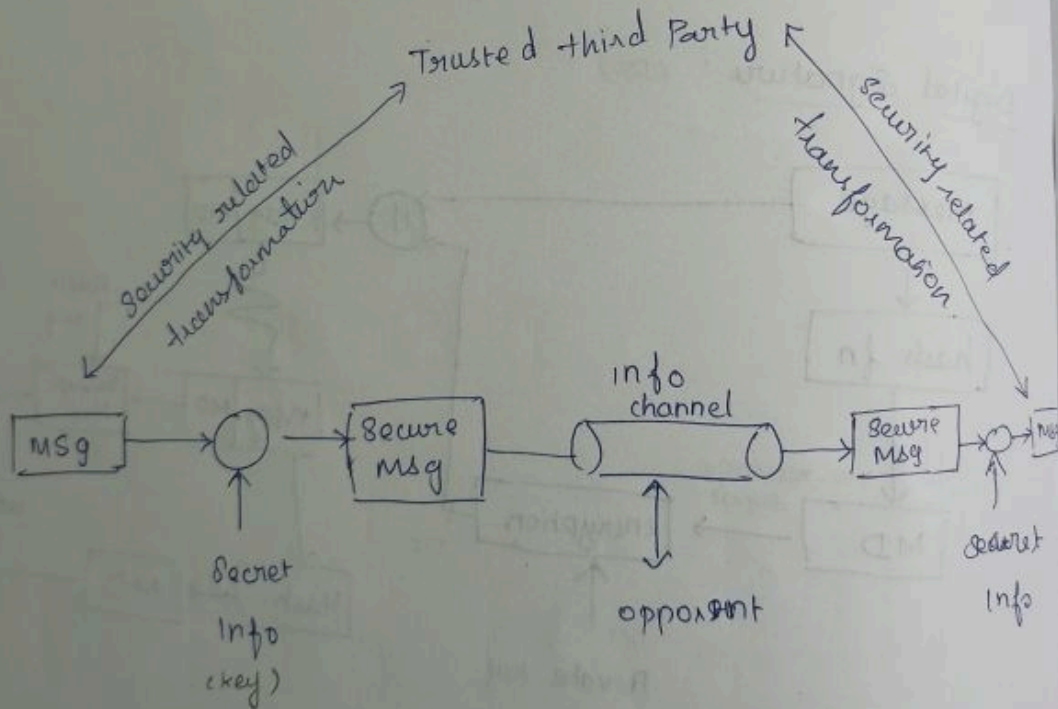 Trusted third Party
security related
transformation
security related
transformation.
Msg
Secure
Msg
info
channel
Secure
Msg
Msg
Secret
Info
(key)
opponent
secret
Info